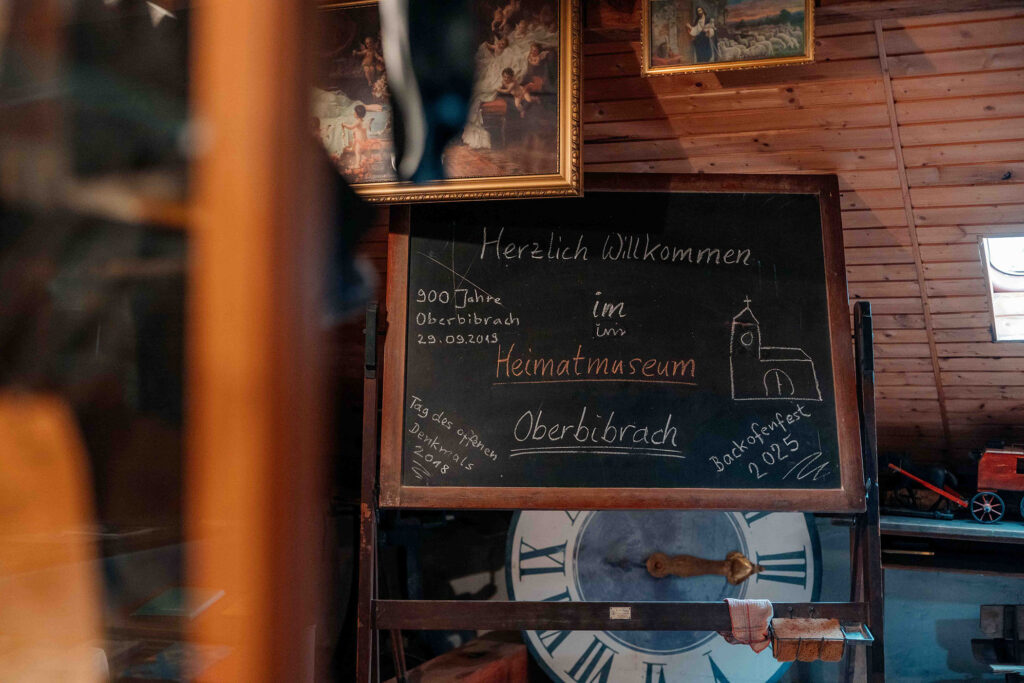 Herzlich Willkommen
im
im
Heimatmuseum
Oberbibrach
900 Jahre
Oberbibrach
29.09.2019
Tag des offenen
Denkmals
2018
Backofenfest
2025